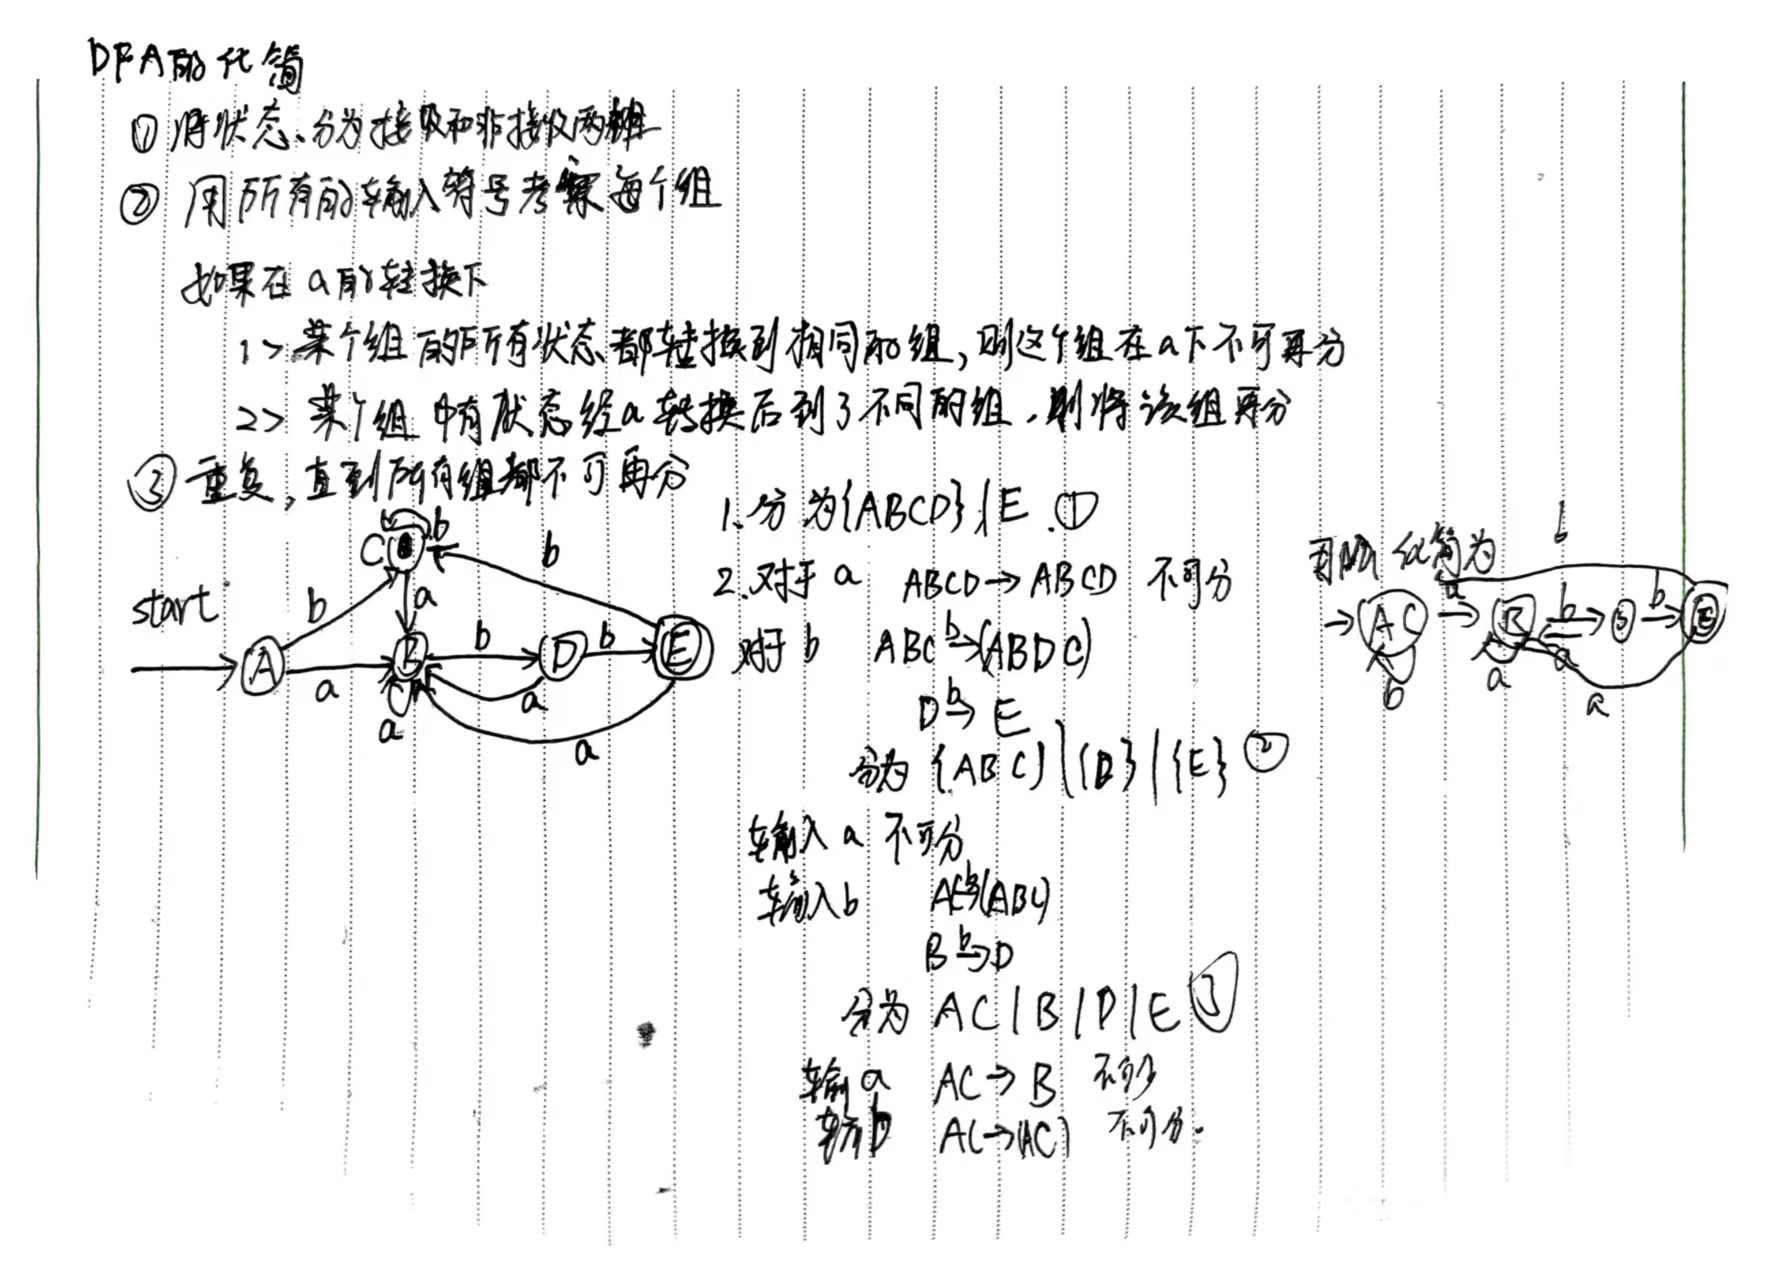 DFA的化简
① 将状态分为接收和非接收两组
② 用所有的输入符号考察每个组
如果在a的转换下
1> 某个组的所有状态都转换到相同的组,则这个组在a下不可再分
2> 某个组中有状态经a转换后到了不同的组,则将该组再分
③ 重复,直到所有组都不可再分
1.分为{ABCD}|E ①
2.对于a ABCD→ABCD 不可分
对于b ABC b→(ABDC)
D b→ E
分为 {ABC}|{D}|{E} ②
输入a 不可分
输入b AC b→(ABC)
B b→D
分为 AC|B|D|E ③
输入a AC→B 不可分
输入b AC→(AC) 不可分.
start
A
b
a
C
b
a
B
a
b
a
D
b
E
b
a
化简为
AC
b
a
B
a
b
a
b
E
b
a